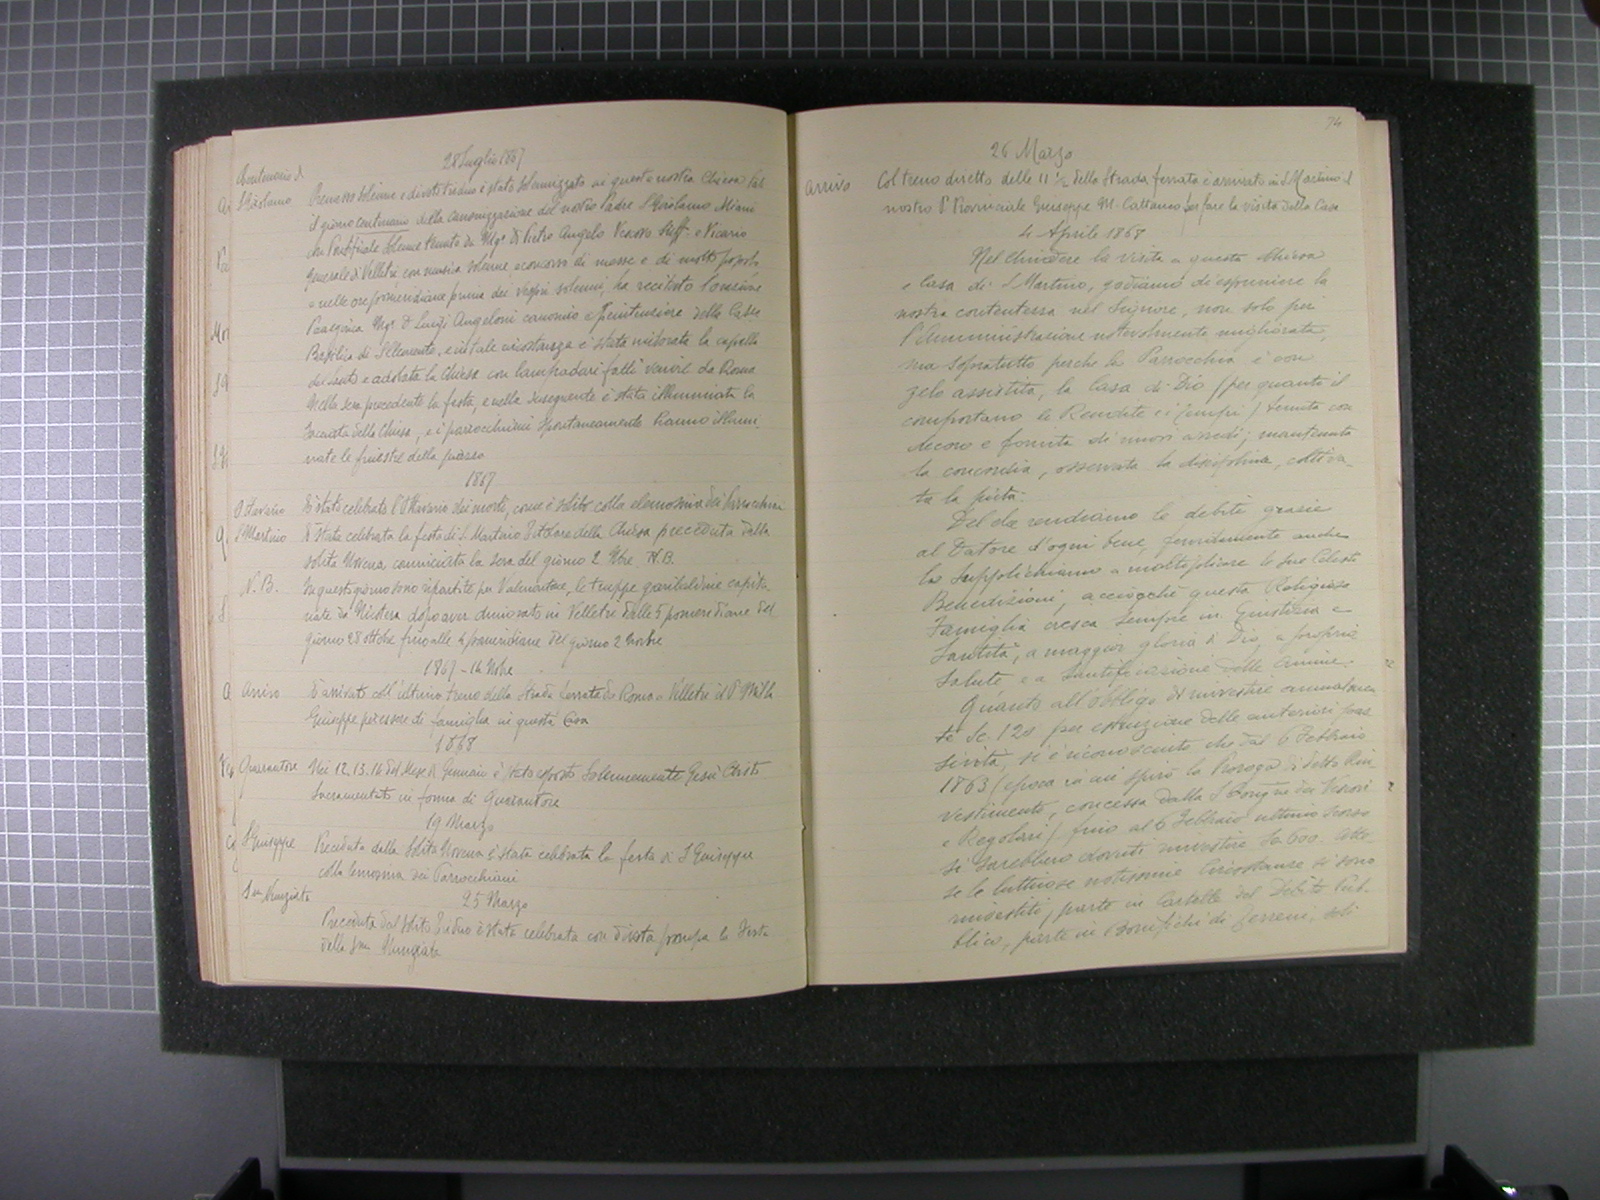 28 Luglio 1867
Centenario di
S Girolamo
Premesso solenne e divoto triduo è stato solennizzato in questa nostra Chiesa
il giorno centenario della canonizzazione del nostro Padre S Girolamo Miani
con Pontificale solenne tenuto da Mgr di Pietro Angelo Vescovo Suff. e Vicario
Generale di Velletri con musica solenne, concorso di messe e di molto popolo
e nelle ore pomeridiane prima dei Vespri solenni, ha recitato l'orazione
Panegirica Mgr D Luigi Angeloni canonico e penitenziere della
Basilica di S Clemente, e in tale circostanza è stata la capella
del Santo e adobata la Chiesa con lampadari fatti venire da Roma
Nella sera precedente la festa, e nella susseguente è stata illuminata la
facciata della Chiesa, e i parrocchiani spontaneamente hanno illumi
nate le finestre della piazza
1867
Ottavario È stato celebrato l'Ottavario dei morti, come è solito colla elemosina dei Parrocchiani
S Martino È stata celebrata la festa di S. Martino Titolare della Chiesa preceduta dalla
solita Novena cominciata la sera del giorno 2 Nbre. N.B.
N. B. In questi giorni sono ripartite per Valmontone, le truppe garibaldine capita
nate da Nicotera dopo aver dimorato in Velletri dalle 5 pomeridiane del
giorno 28 ottobre fino alle 4 pomeridiane del giorno 2 Novbre
1867 - 14 Nobre
Arrivo È arrivato coll'ultimo treno della Strada ferrata da Roma a Velletri il P
Giuseppe per essere di famiglia in questa Casa
1868
Quarantore Nei 12. 13. 14 del Mese di Gennaio è stato esposto Solennemente Gesù Cristo
Sacramentato in forma di Quarantore
19 Marzo
S Giuseppe Preceduta dalla Solita Novena è stata celebrata la festa di S Giuseppe
colla limosina dei Parrocchiani
25 Marzo
SSma Nunziata
Preceduta dal solito Triduo è stata celebrata con divota pompa la Festa
della SSma Nunziata
74
26 Marzo
Arrivo Col treno diretto delle 11 1/2 della Strada ferrata è arrivato in S Martino il
nostro P. Provinciale Giuseppe M. Cattaneo per fare la visita della Casa
4 Aprile 1868
Nel chiudere la visita a questa Chiesa
e Casa di S Martino, godiamo di esprimere la
nostra contentezza nel Signore, non solo per
l'Amministrazione notevolmente migliorata,
ma sopratutto perchè la Parrocchia è con
zelo assistita, la Casa di Dio (per quanto il
comportano le Rendite e i tempi) tenuta con
decoro e fornita di nuovi arredi; mantenuta
la concordia, osservata la disciplina, coltiva-
ta la pietà.
Del che rendiamo le debite grazie
al Datore d'ogni bene, fervidamente anche
lo Supplichiamo a moltiplicare le sue Celesti
Benedizioni, acciocchè questa Religiosa
Famiglia cresca sempre in Giustizia e
Santità, a maggior gloria di Dio, a propria
Salute e a Santificazione delle anime.
Quanto all'obbligo di rinvestire annualmen
te Sc. 120 per estinzione delle anteriori pas
sività, si è riconosciuto che dal 6 Febbraio
1863 (epoca in cui spirò la Proroga di detto Rin
vestimento, concessa dalla S Congne dei Vescovi
e Regolari) fino al 6 Febbraio ultimo scorso
si sarebbero dovuti rinvestire Sc 600. Atte
se le luttuose notissime Circostanze si sono
rinvestiti, parte in Cartelle del Debito Pub
blico, parte in Bonifichi di terreni, soli